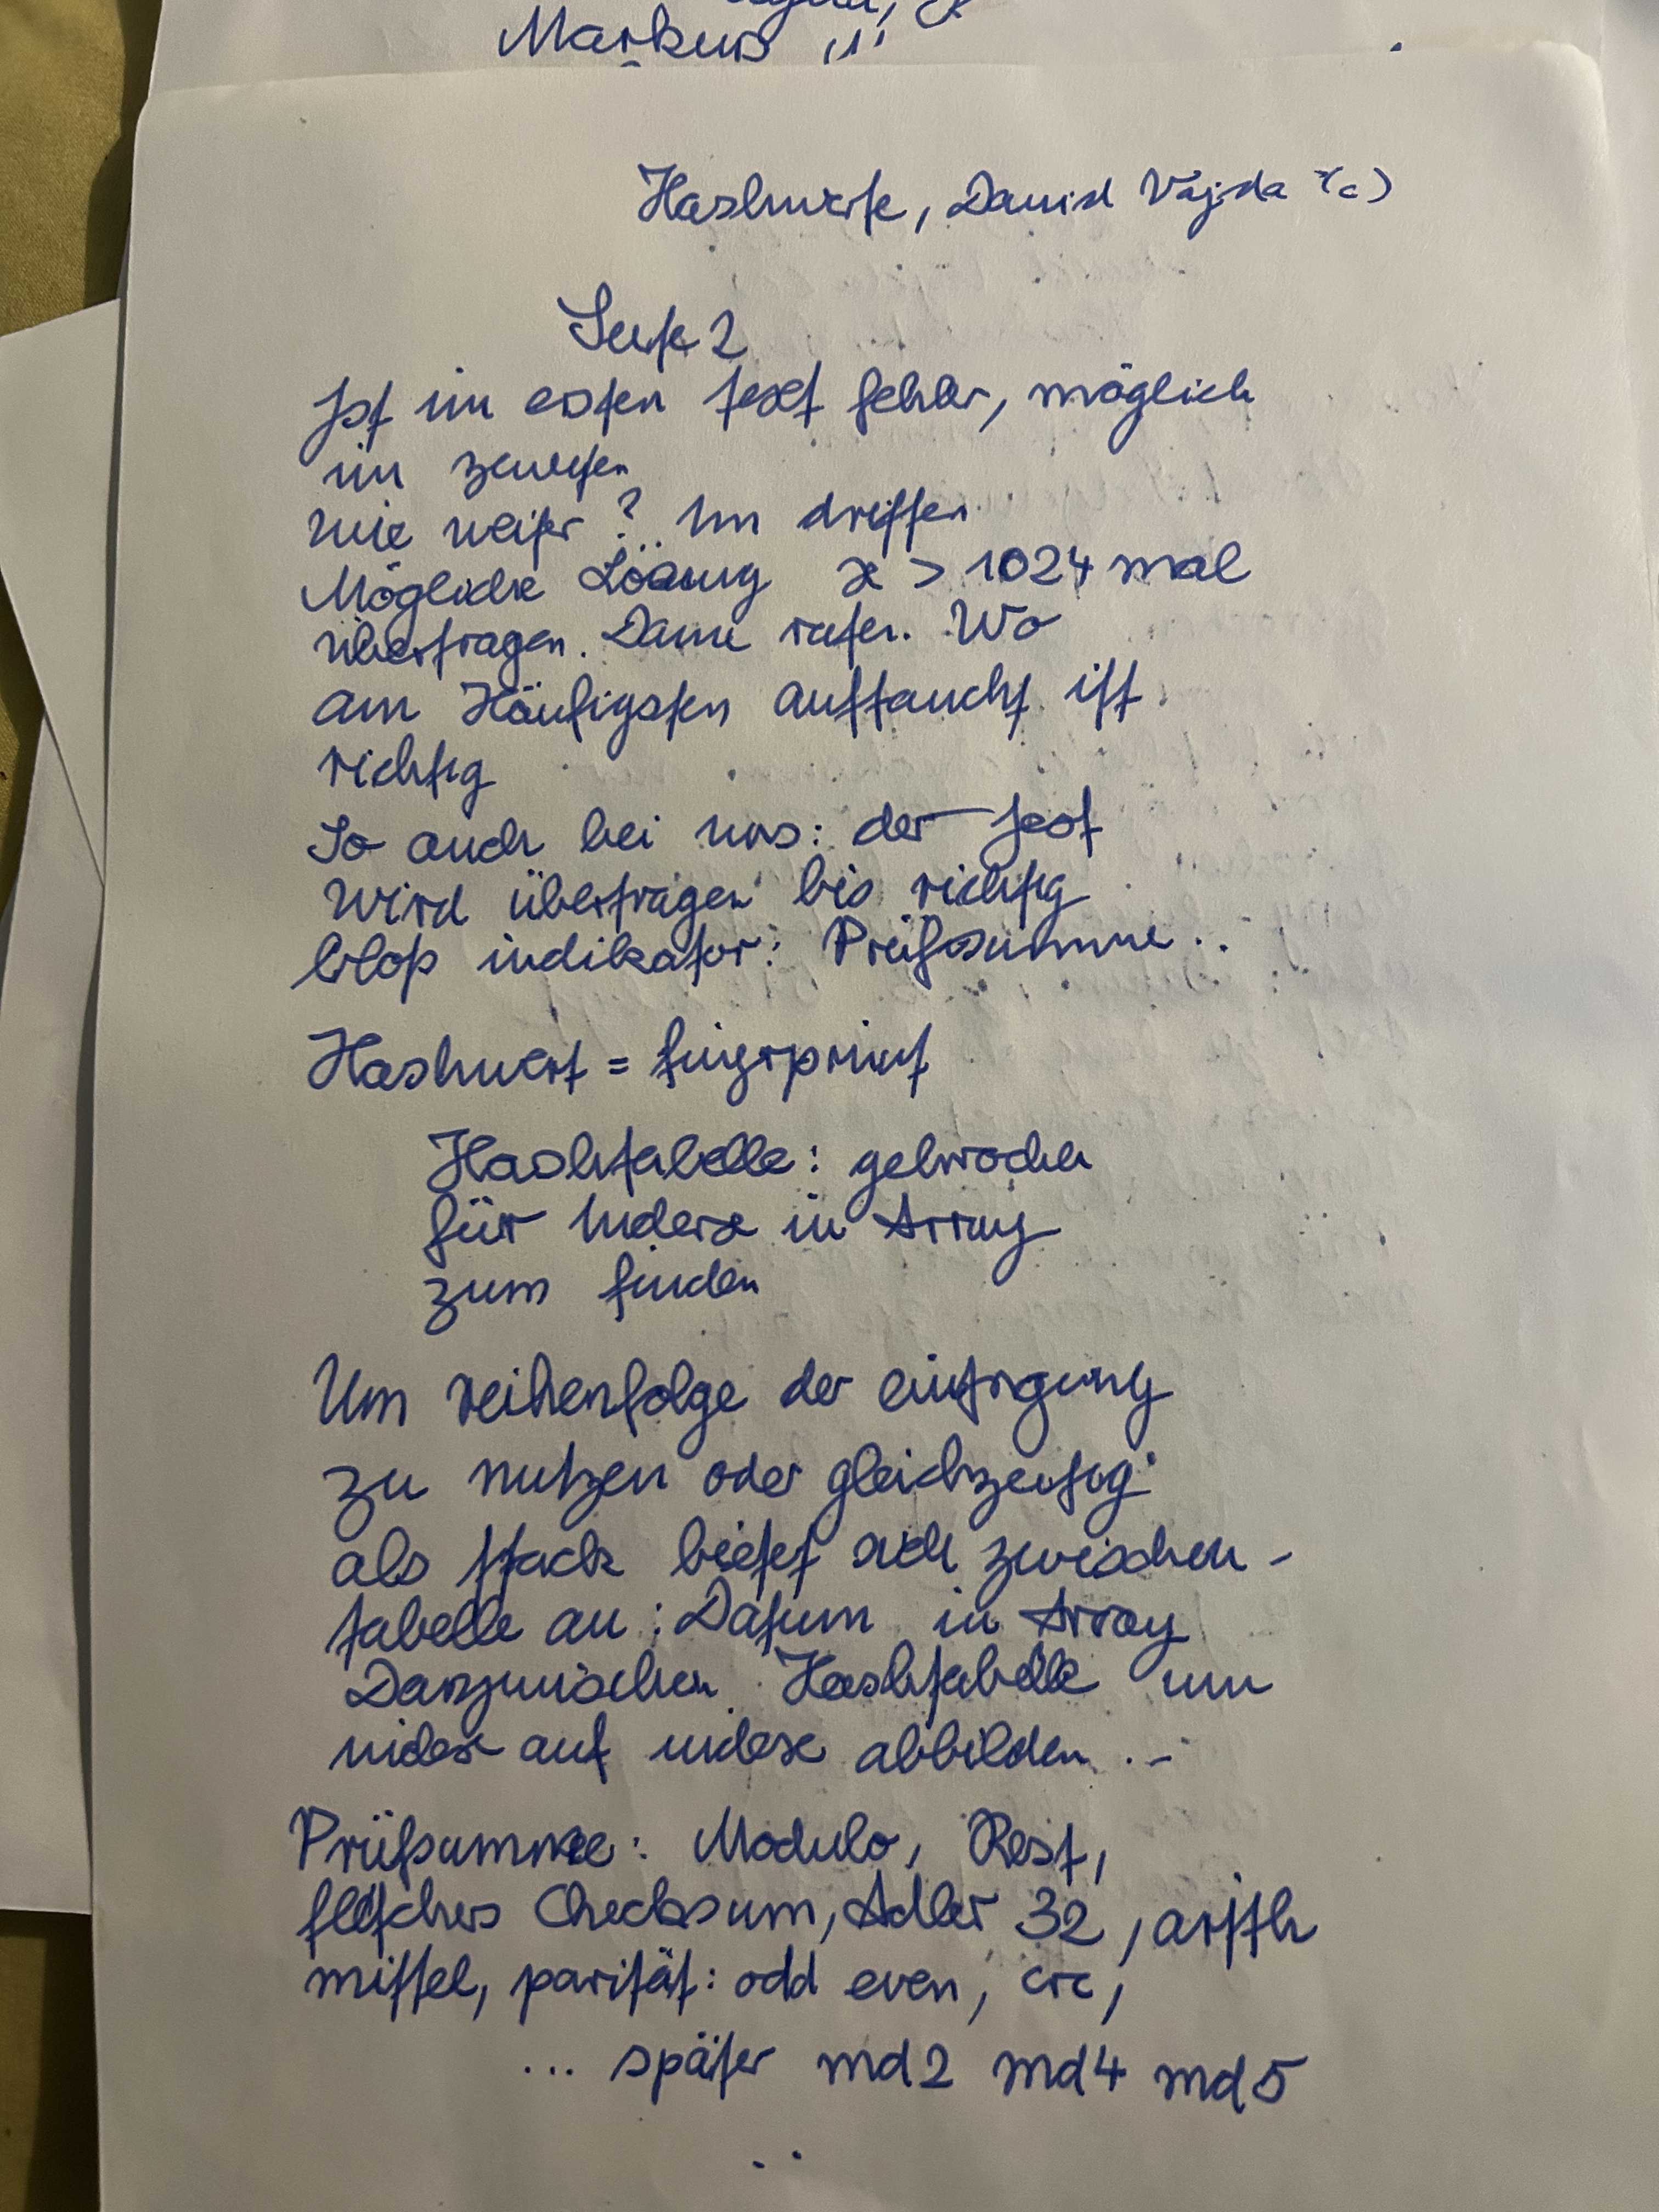 Markus
Hashwerte, David Vajda (c)
Seite 2
Ist im ersten text fehler, möglich
im zweiten
wie weiter? .. Im dritten
Mögliche Lösung x > 1024 mal
übertragen. Dann raten. Wo
am Häufigsten auftaucht ist
richtig
So auch bei uns: der test
Wird übertragen bis richtig
bloß indikator: Prüfsumme..
Hashwert = fingerprint
Hashtabelle: gebrochen
für Indexe in Array
zum finden
Um reihenfolge der eintragung
zu nutzen oder gleichzeitig
als stack bietet sich zwischen-
tabelle an: Datum in Array
Dazwischen Hashtabelle um
index auf indexe abbilden ..
Prüfsumme: Modulo, Rest,
fletchers Checksum, Adler 32, arith
mittel, parität: odd even, crc,
... später md2 md4 md5
..